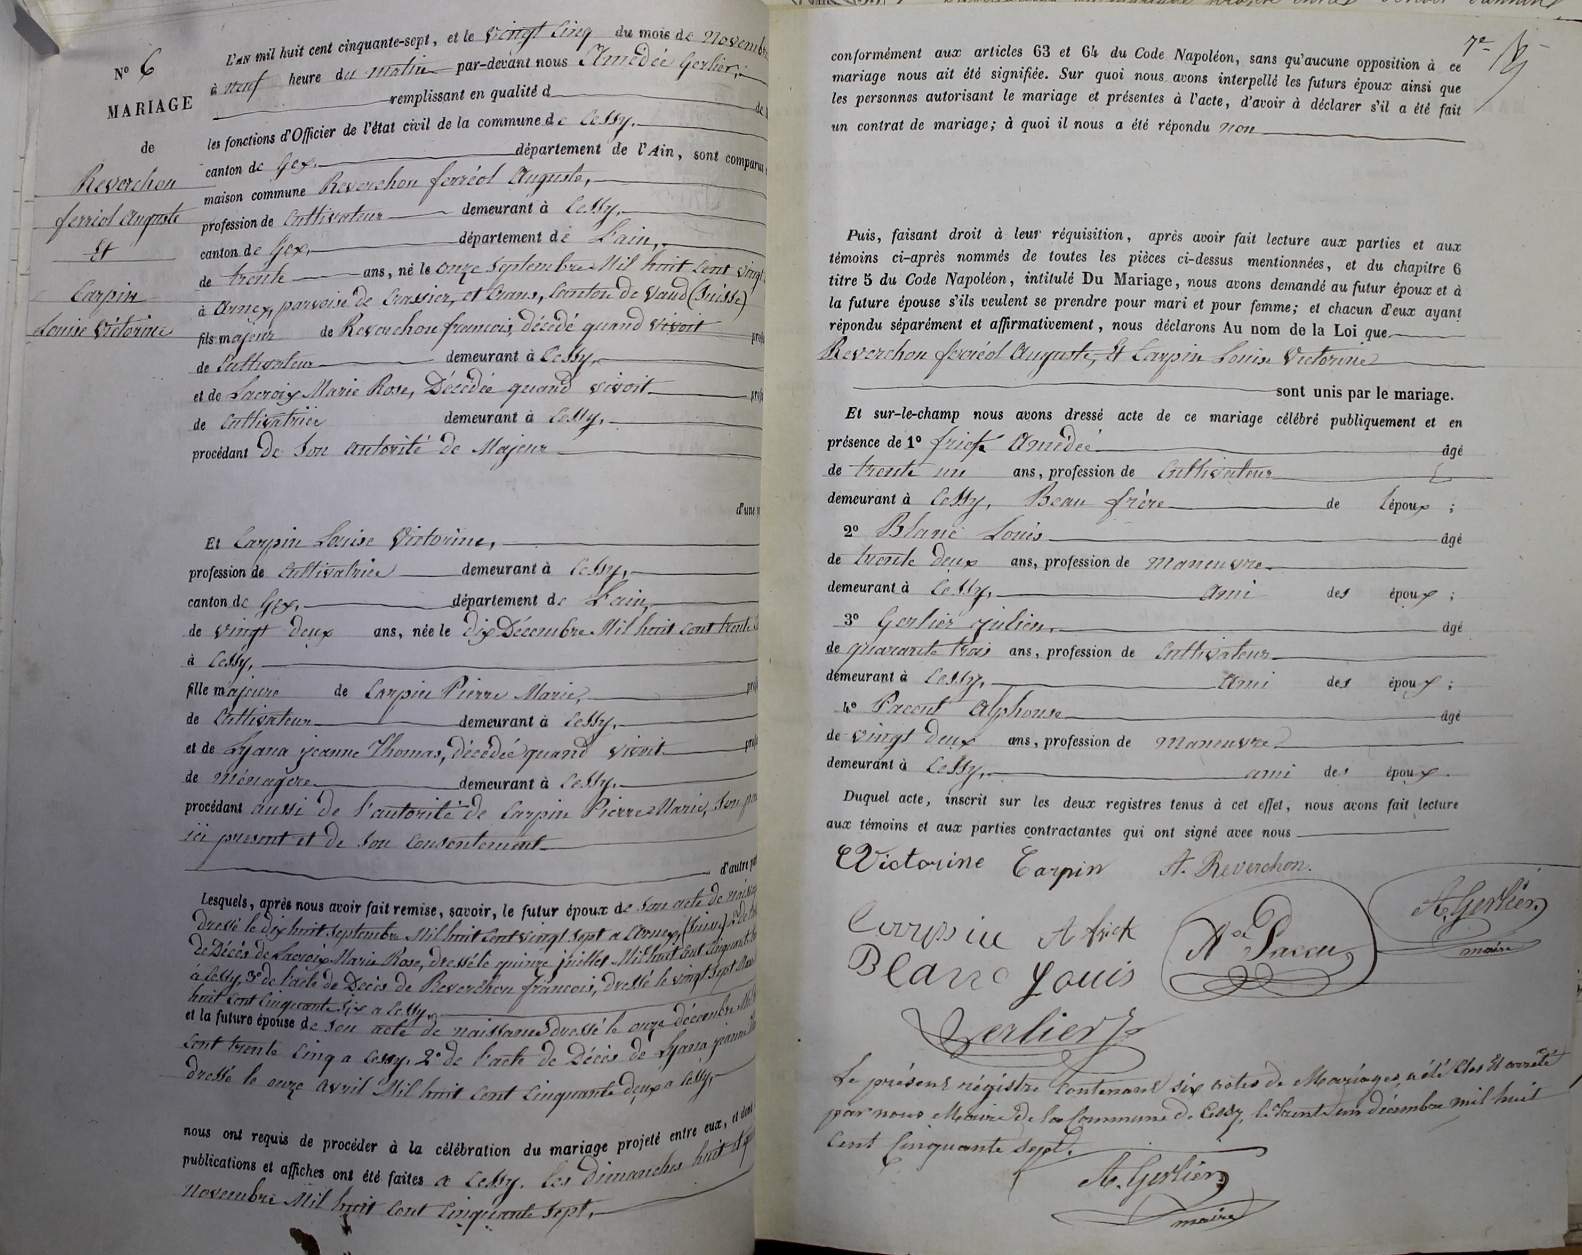 N° 6
MARIAGE
de
Reverchon
ferréol Auguste
Et
Carpin
Louise Victorine
L'AN mil huit cent cinquante-sept, et le vingt Cinq du mois de Novembre
à neuf heure du matin par-devant nous Amedée Gerlier,
remplissant en qualité d
les fonctions d'Officier de l'état civil de la commune de Cessy,
canton de Gex, département de l'Ain, sont comparus
maison commune Reverchon ferréol Auguste,
profession de Cultivateur demeurant à Cessy,
canton de Gex, département de L'ain,
de trente ans, né le onze Septembre Mil huit Cent vingt
à Arnex, paroisse de Crassier, et Crans, Canton de Vaud (Suisse)
fils majeur de Reverchon francois, décédé quand vivoit
de Cultivateur demeurant à Cessy,
et de Lacroix Marie Rose, Décédée quand vivoit
de Cultivatrice demeurant à Cessy,
procédant De Son autorité de Majeur
d'une
Et Carpin Louise Victorine,
profession de Cultivatrice demeurant à Cessy,
canton de Gex, département de L'ain,
de vingt deux ans, née le dix Décembre Mil huit Cent trente
à Cessy,
fille majeure de Carpin Pierre Marie,
de Cultivateur demeurant à Cessy,
et de Lyana jeanne Thomas, décédée quand vivoit
de ménagere demeurant à Cessy,
procédant aussi de l'autorité de Carpin Pierre Marie, Son
ici present et de Son Consentement
d'autre
Lesquels, après nous avoir fait remise, savoir, le futur époux de Son acte de
Dressé le dix huit Septembre Mil huit Cent vingt Sept a Arnex, (Suisse) 2° de
De Décès de Lacroix Marie Rose, dressé le quinze juillet Mil huit Cent Cinquante
à Cessy, 3° de l'acte de Décès de Reverchon francois, dressé le vingt Sept
huit Cent Cinquante Six a Cessy,
et la future épouse de Son acte de naissance dressé le onze décembre
Cent trente Cinq a Cessy, 2° de l'acte de Décès de Lyana jeanne
dressé le onze Avril Mil huit Cent Cinquante deux a Cessy,
nous ont requis de procéder à la célébration du mariage projeté entre eux, et dont
publications et affiches ont été faites a Cessy, les dimanches huit et
Novembre Mil huit Cent Cinquante Sept,
7e
conformément aux articles 63 et 64 du Code Napoléon, sans qu'aucune opposition à ce
mariage nous ait été signifiée. Sur quoi nous avons interpellé les futurs époux ainsi que
les personnes autorisant le mariage et présentes à l'acte, d'avoir à déclarer s'il a été fait
un contrat de mariage; à quoi il nous a été répondu non
Puis, faisant droit à leur réquisition, après avoir fait lecture aux parties et aux
témoins ci-après nommés de toutes les pièces ci-dessus mentionnées, et du chapitre 6
titre 5 du Code Napoléon, intitulé Du Mariage, nous avons demandé au futur époux et à
la future épouse s'ils veulent se prendre pour mari et pour femme; et chacun d'eux ayant
répondu séparément et affirmativement, nous déclarons Au nom de la Loi que
Reverchon ferréol Auguste, Et Carpin Louise Victorine
sont unis par le mariage.
Et sur-le-champ nous avons dressé acte de ce mariage célébré publiquement et en
présence de 1° frick Amedée âgé
de trente un ans, profession de Cultivateur
demeurant à Cessy, Beau frère de l'époux ;
2° Blanc Louis âgé
de trente deux ans, profession de Maneuvre
demeurant à Cessy, ami des époux ;
3° Gerlier Julien, âgé
de quarante trois ans, profession de Cultivateur
demeurant à Cessy, ami des époux ;
4° Pacout Alphonse âgé
de vingt deux ans, profession de Maneuvre
demeurant à Cessy, ami des époux.
Duquel acte, inscrit sur les deux registres tenus à cet effet, nous avons fait lecture
aux témoins et aux parties contractantes qui ont signé avec nous
Victorine Carpin A. Reverchon.
A frick A. Gerlier,
maire
Blanc Louis
Gerlier J
Le présent régistre Contenant six actes de Mariages, a été Clos Et arrêté
par nous Maire De la Commune de Cessy, le trente un décembre mil huit
Cent Cinquante sept.
A. Gerlier,
maire